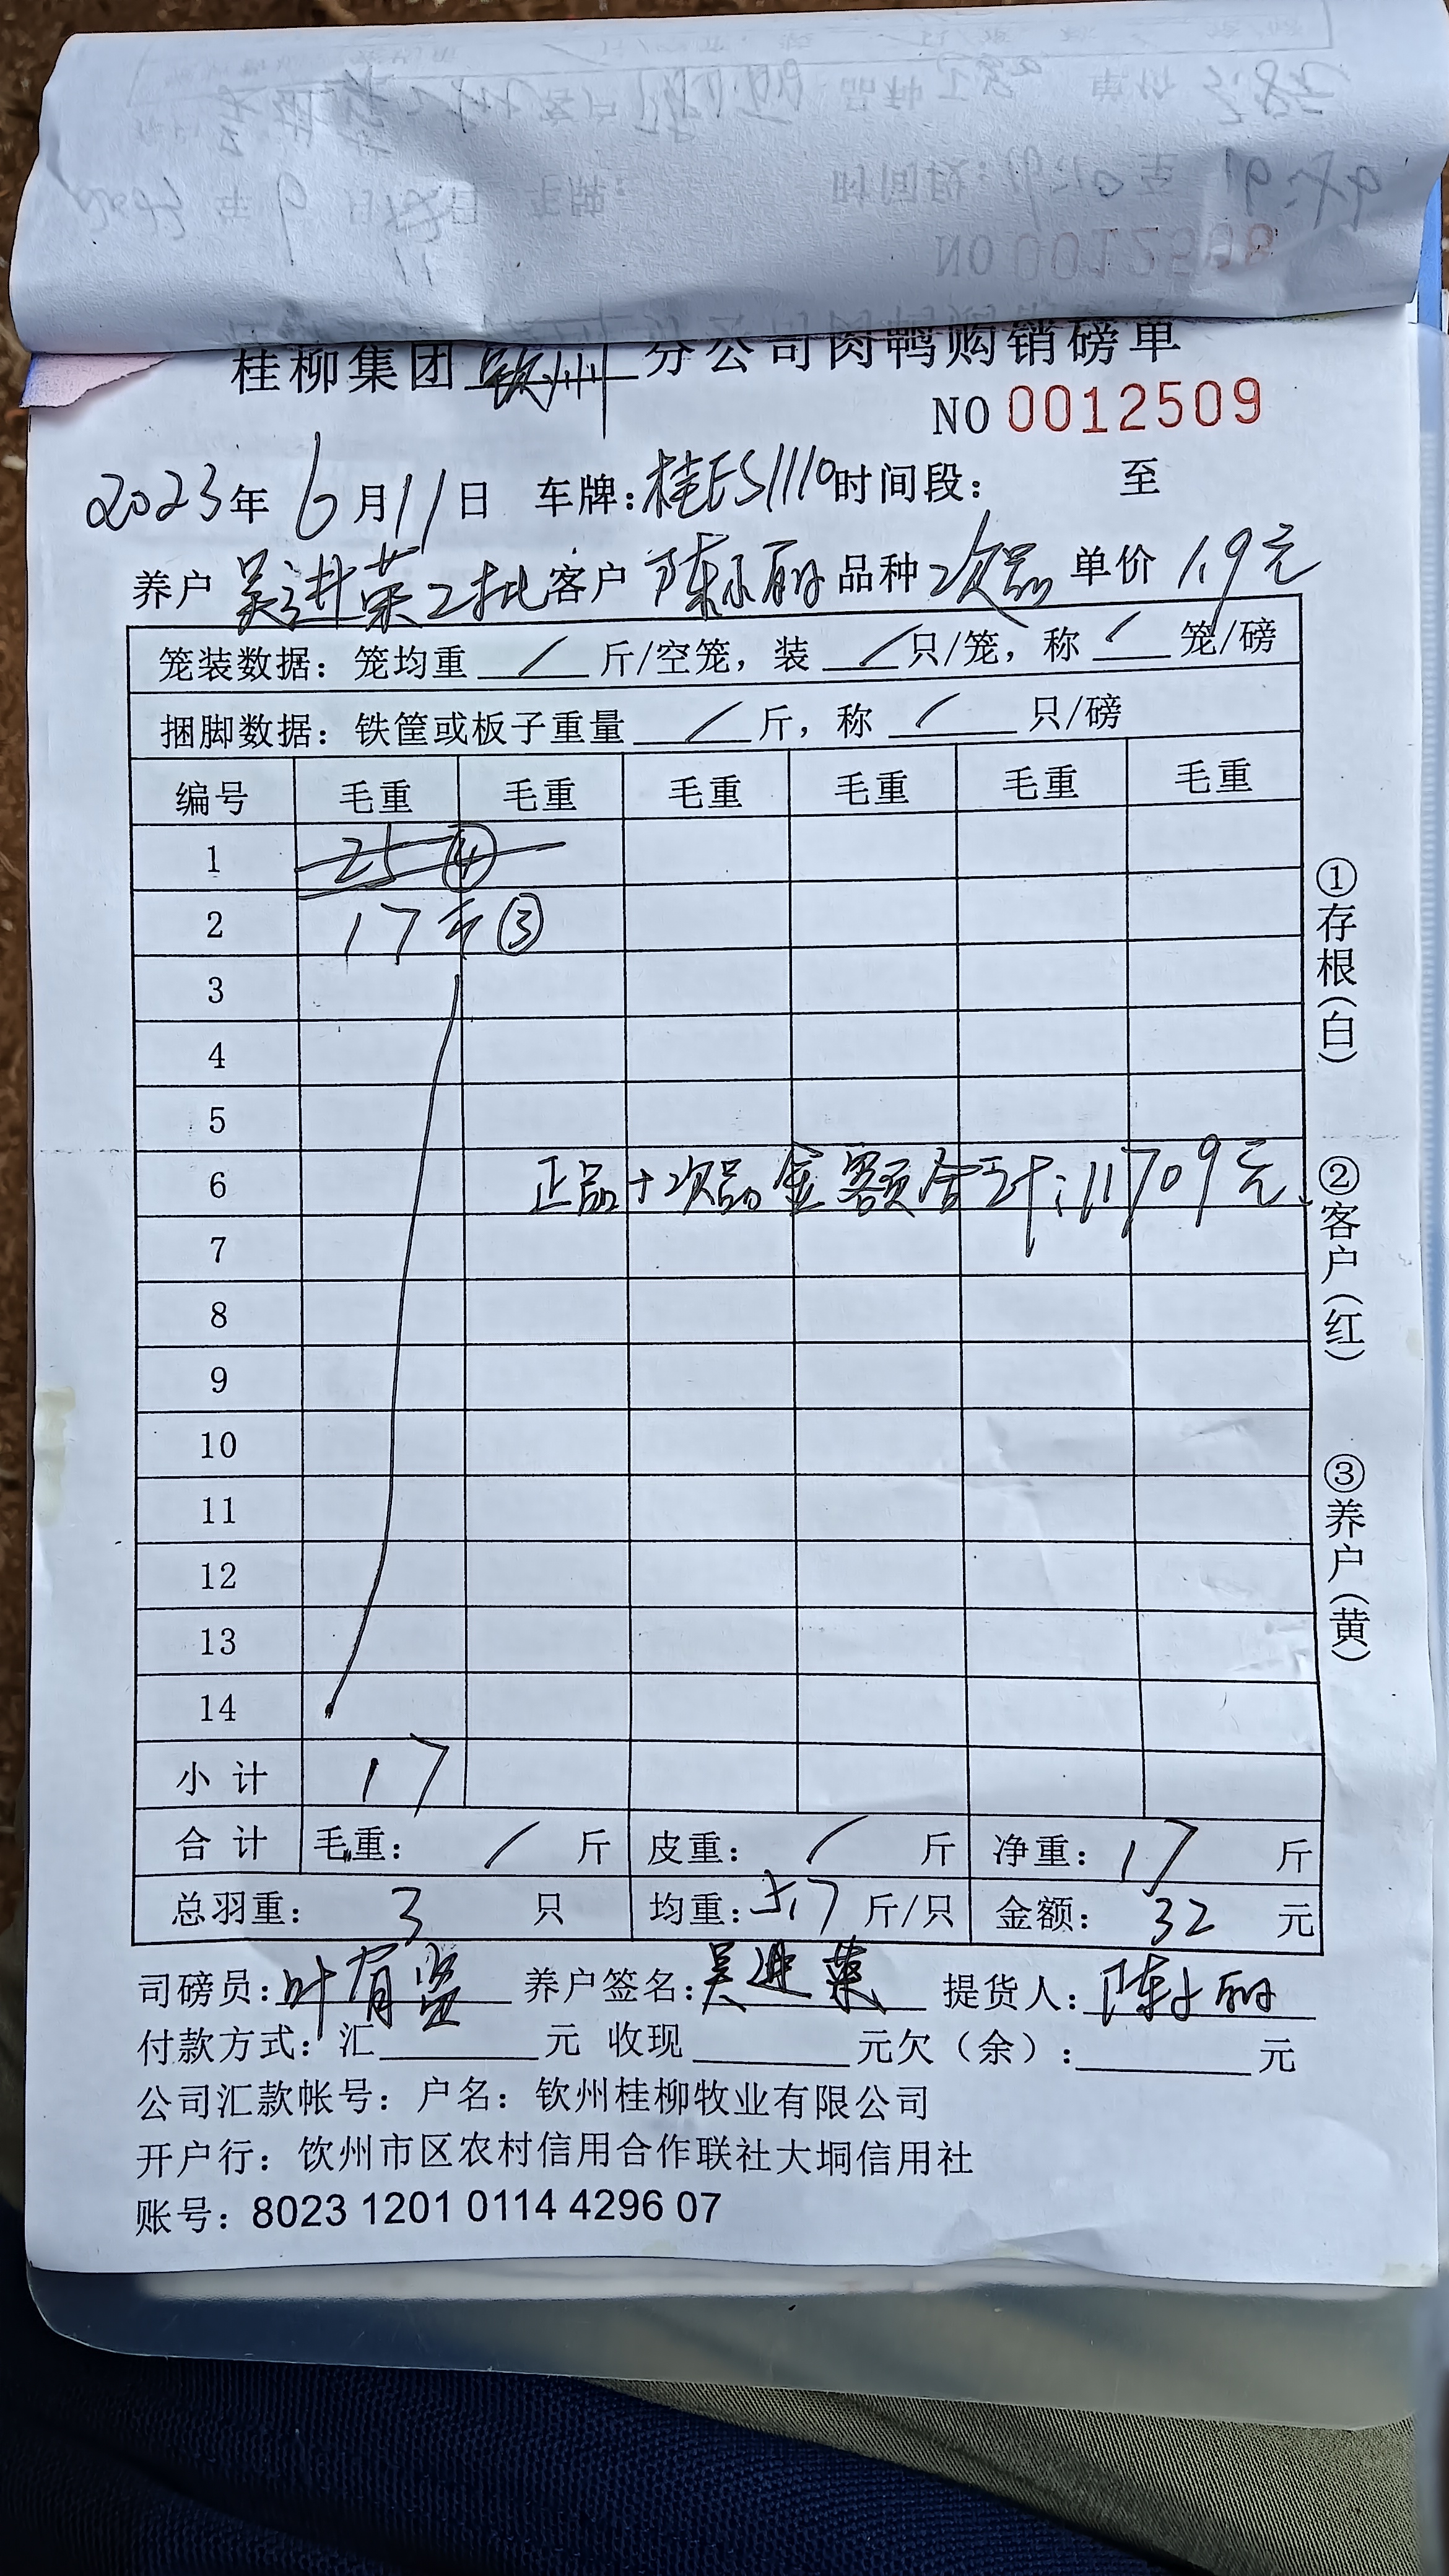 桂柳集团 钦州 分公司肉鸭购销磅单
NO 0012509
2023年 6月11日 车牌:桂ES1110时间段: 至
养户 吴进荣2批 客户 陈小丽 品种 次品 单价 1.9元
笼装数据: 笼均重 / 斤/空笼, 装 / 只/笼, 称 / 笼/磅
捆脚数据: 铁筐或板子重量 / 斤, 称 / 只/磅
编号 毛重 毛重 毛重 毛重 毛重 毛重
1 25 ④
2 17斤 ③
3
4
5
6 正品+次品金额合计:11709元
7
8
9
10
11
12
13
14
小 计 17
合 计 毛重: / 斤 皮重: / 斤 净重: 17 斤
总羽重: 3 只 均重: 5.7 斤/只 金额: 32 元
司磅员: 叶有 养户签名: 吴进荣 提货人: 陈小丽
付款方式: 汇 元 收现 元欠(余): 元
公司汇款帐号: 户名: 钦州桂柳牧业有限公司
开户行: 饮州市区农村信用合作联社大垌信用社
账号: 8023 1201 0114 4296 07
①存根(白)
②客户(红)
③养户(黄)